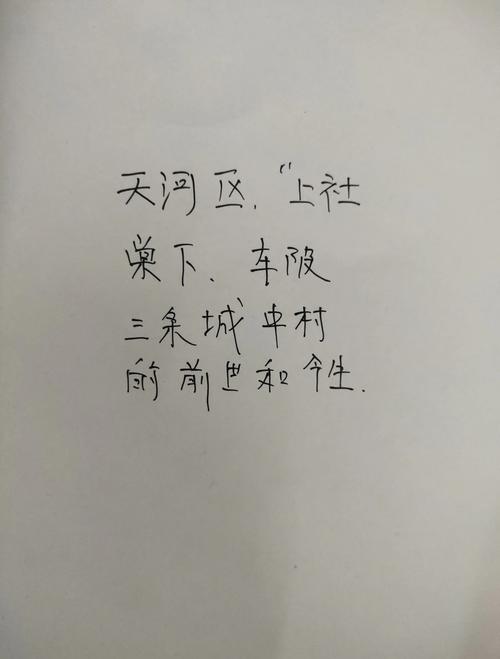 天河区，“上社
棠下、车陂
三条城中村
的前世和今生.